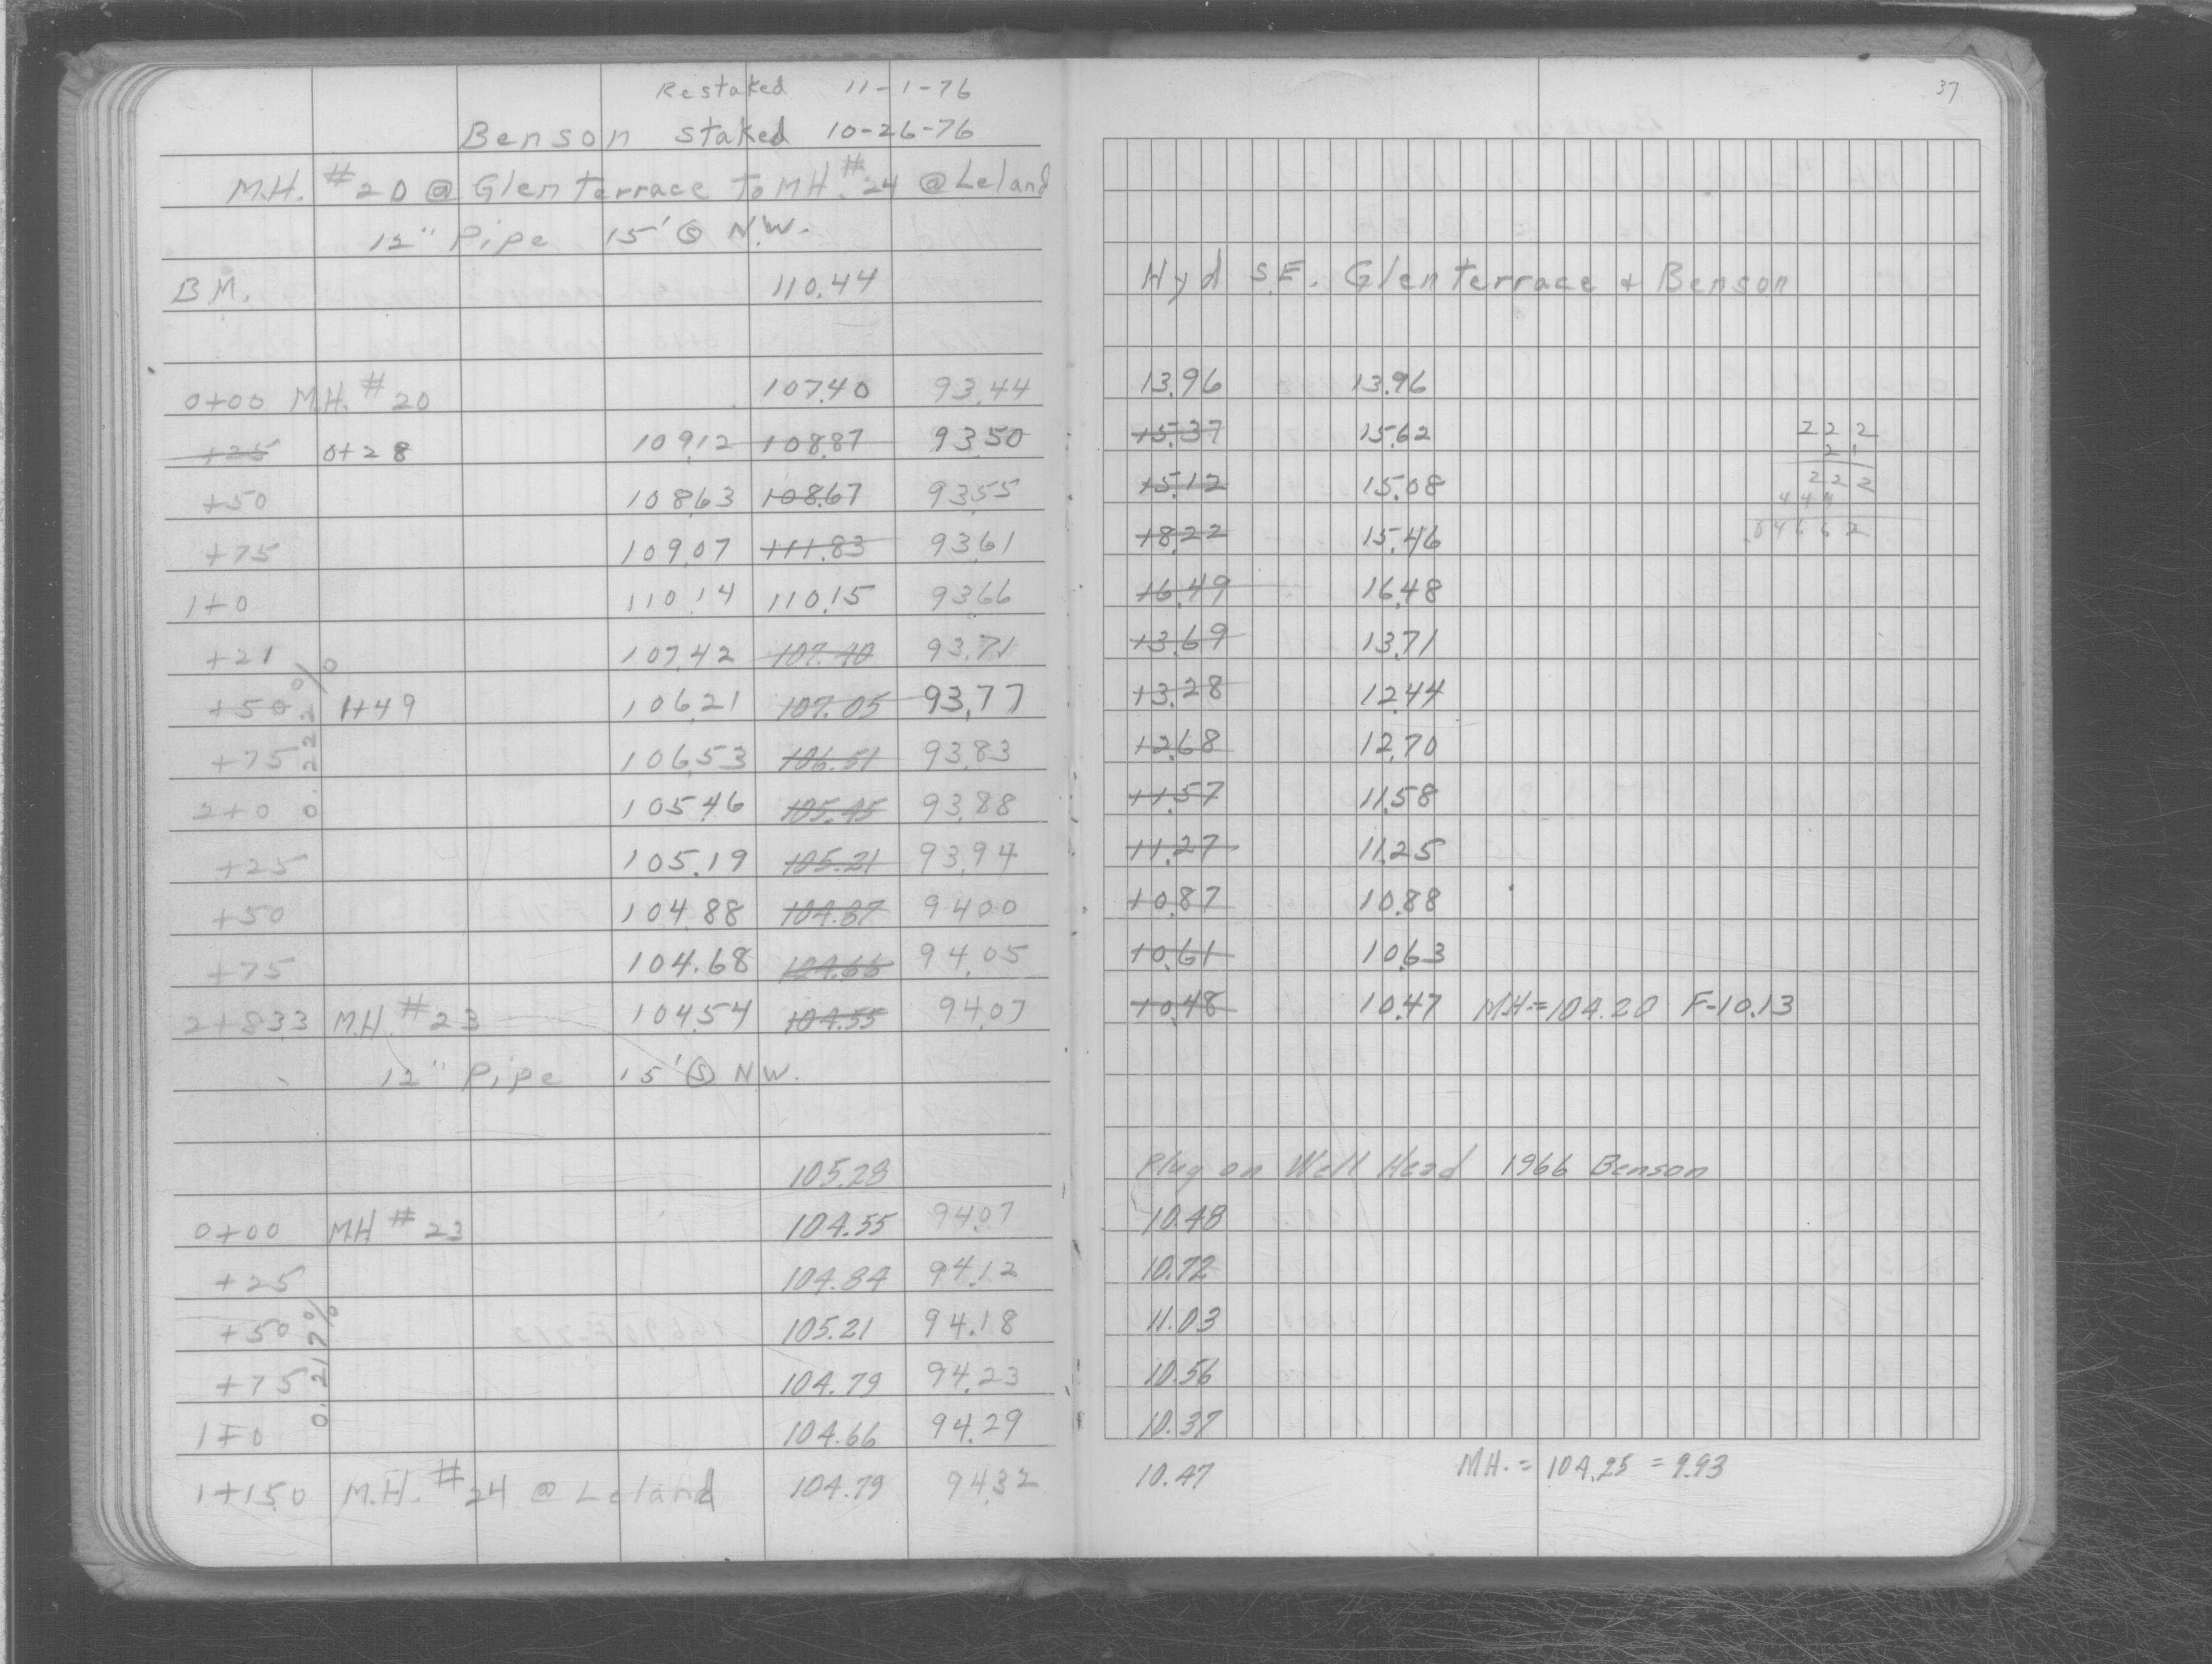 Restaked 11-1-76
Benson staked 10-26-76
M.H. #20 @ Glen terrace To MH. #24 @ Leland
12" Pipe 15' Ⓢ N.W.
BM. 110.44
0+00 M.H. #20 107.40 93.44
+25 0+28 109.12 108.87 93.50
+50 108.63 108.67 93.55
+75 109.07 111.83 93.61
1+0 110.14 110.15 93.66
+21 107.42 107.40 93.71
+50 1+49 106.21 107.05 93.77
+75 106.53 106.51 93.83
2+0 105.46 105.45 93.88
+25 105.19 105.21 93.94
+50 104.88 104.87 94.00
+75 104.68 104.66 94.05
2+83.3 M.H. #23 104.54 104.55 94.07
0.22%
12" Pipe 15' Ⓢ N.W.
105.28
0+00 MH #23 104.55 94.07
+25 104.84 94.12
+50 105.21 94.18
+75 104.79 94.23
1+0 104.66 94.29
1+15.0 M.H. #24 @ Leland 104.79 94.32
0.217%
37
Hyd S.E. Glen terrace + Benson
13.96 13.96
15.37 15.62
15.12 15.08
18.22 15.46
16.49 16.48
13.69 13.71
13.28 12.44
12.68 12.70
11.57 11.58
11.27 11.25
10.87 10.88
10.61 10.63
10.48 10.47 MH=104.20 F-10.13
222
21
222
444
.04662
Plug on Well Head 1966 Benson
10.48
10.72
11.03
10.56
10.37
10.47 MH. = 104.25 = 9.93